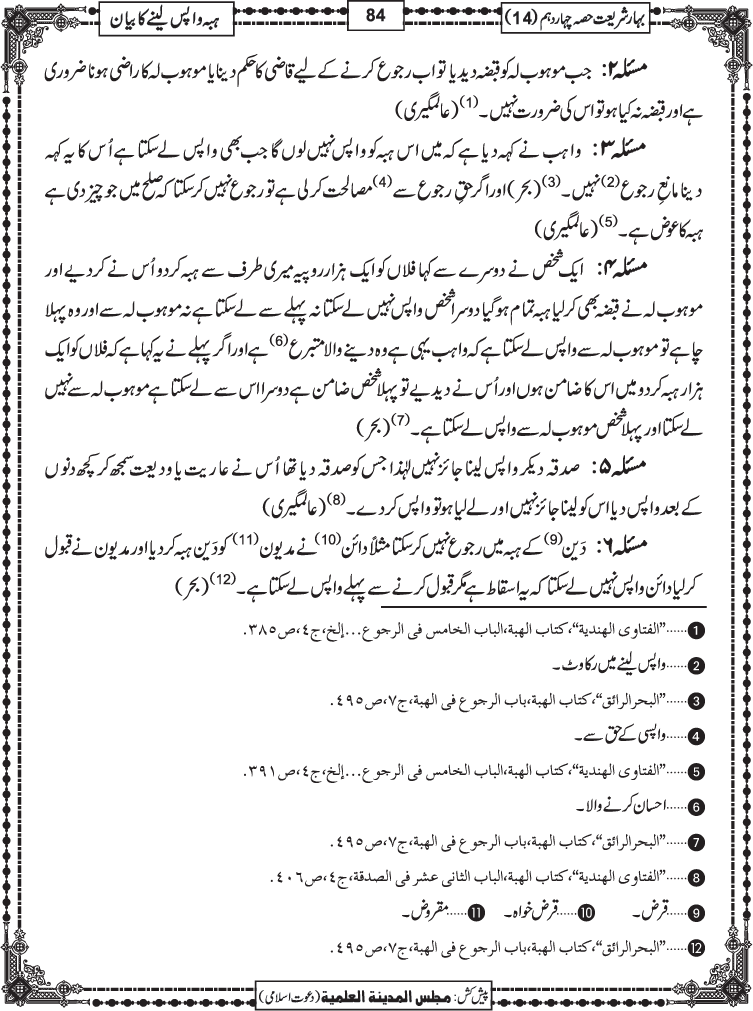 بہار شریعت حصہ چہاردہم (14)
84
ہبہ واپس لینے کا بیان
مسئلہ ۲: جب موہوب لہ کو قبضہ دیدیا تو اب رجوع کرنے کے لیے قاضی کا حکم دینا یا موہوب لہ کا راضی ہونا ضروری
ہے اور قبضہ نہ کیا ہو تو اس کی ضرورت نہیں۔(1) (عالمگیری)
مسئلہ ۳: واہب نے کہہ دیا ہے کہ میں اس ہبہ کو واپس نہیں لوں گا جب بھی واپس لے سکتا ہے اُس کا یہ کہہ
دینا مانعِ رجوع(2) نہیں۔(3) (بحر) اور اگر حقِ رجوع سے(4) مصالحت کرلی ہے تو رجوع نہیں کرسکتا کہ صلح میں جو چیز دی ہے
ہبہ کا عوض ہے۔(5) (عالمگیری)
مسئلہ ۴: ایک شخص نے دوسرے سے کہا فلاں کو ایک ہزار روپیہ میری طرف سے ہبہ کردو اُس نے کردیے اور
موہوب لہ نے قبضہ بھی کرلیا ہبہ تمام ہوگیا دوسرا شخص واپس نہیں لے سکتا نہ پہلے سے لے سکتا ہے نہ موہوب لہ سے اور وہ پہلا
چاہے تو موہوب لہ سے واپس لے سکتا ہے کہ واہب یہی ہے وہ دینے والا متبرع(6) ہے اور اگر پہلے نے یہ کہا ہے کہ فلاں کو ایک
ہزار ہبہ کردو میں اس کا ضامن ہوں اور اُس نے دیدیے تو پہلا شخص ضامن ہے دوسرا اس سے لے سکتا ہے موہوب لہ سے نہیں
لے سکتا اور پہلا شخص موہوب لہ سے واپس لے سکتا ہے۔(7) (بحر)
مسئلہ ۵: صدقہ دیکر واپس لینا جائز نہیں لہٰذا جس کو صدقہ دیا تھا اُس نے عاریت یا ودیعت سمجھ کر کچھ دنوں
کے بعد واپس دیا اس کو لینا جائز نہیں اور لے لیا ہو تو واپس کردے۔(8) (عالمگیری)
مسئلہ ۶: دَین(9) کے ہبہ میں رجوع نہیں کرسکتا مثلاً دائن(10) نے مدیون(11) کو دَین ہبہ کردیا اور مدیون نے قبول
کرلیا دائن واپس نہیں لے سکتا کہ یہ اسقاط ہے مگر قبول کرنے سے پہلے واپس لے سکتا ہے۔(12) (بحر)
1......"الفتاوی الهندية"، کتاب الهبة،الباب الخامس فی الرجوع...إلخ،ج٤،ص٣٨٥.
2......واپس لینے میں رکاوٹ۔
3......"البحرالرائق"، کتاب الهبة،باب الرجوع فی الهبة،ج٧،ص٤٩٥.
4......واپسی کے حق سے۔
5......"الفتاوی الهندية"، کتاب الهبة،الباب الخامس فی الرجوع...إلخ،ج٤،ص٣٩١.
6......احسان کرنے والا۔
7......"البحرالرائق"، کتاب الهبة،باب الرجوع فی الهبة،ج٧،ص٤٩٥.
8......"الفتاوی الهندية"، کتاب الهبة،الباب الثانی عشر فی الصدقة،ج٤،ص٤٠٦.
9......قرض۔ 10......قرض خواہ۔ 11......مقروض۔
12......"البحرالرائق"، کتاب الهبة،باب الرجوع فی الهبة،ج٧،ص٤٩٥.
پیش کش: مجلس المدینة العلمیة (دعوت اسلامی)